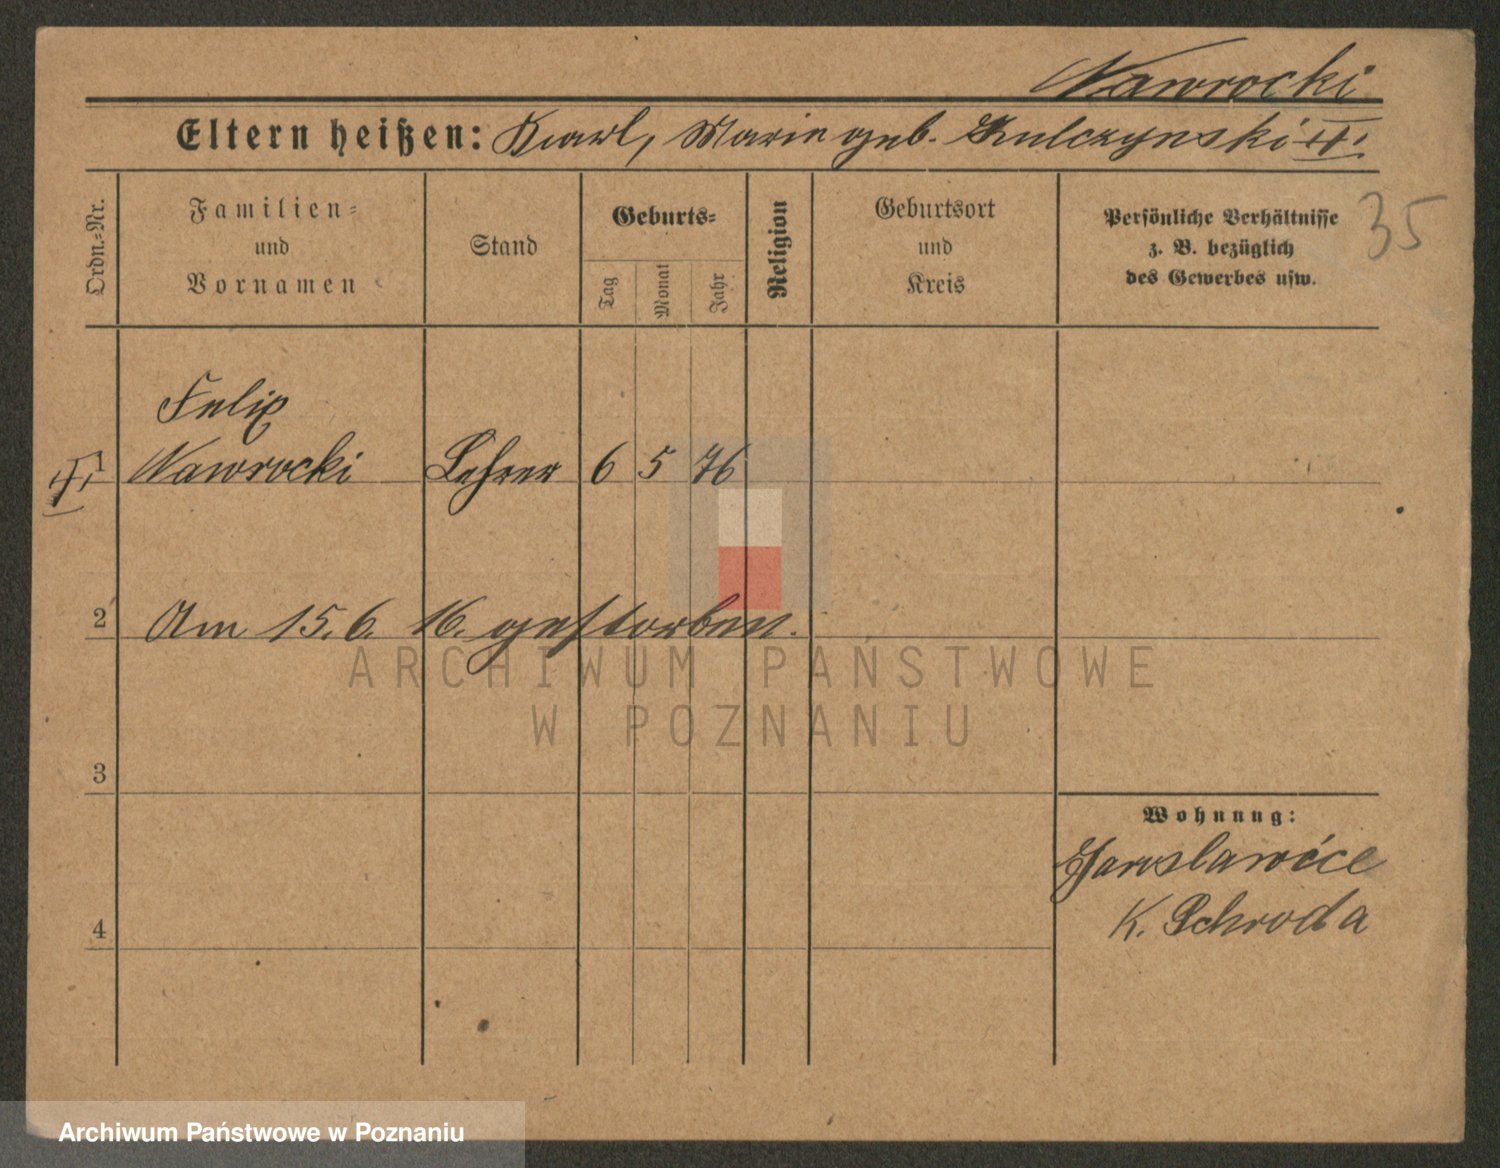 Nawrocki
Eltern heißen: Karl, Marie geb. Kulczynski
Ordn.=Nr.
Familien=
und
Vornamen
Stand
Geburts=
Tag
Monat
Jahr
Religion
Geburtsort
und
Kreis
Persönliche Verhältnisse
z. B. bezüglich
des Gewerbes usw.
35
Felix
1 Nawrocki Lehrer 6 5 76
2 Am 15. 6. 16. gestorben.
ARCHIWUM PAŃSTWOWE
W POZNANIU
3
Wohnung:
Jaroslawice
K. Schroda
4
Archiwum Państwowe w Poznaniu